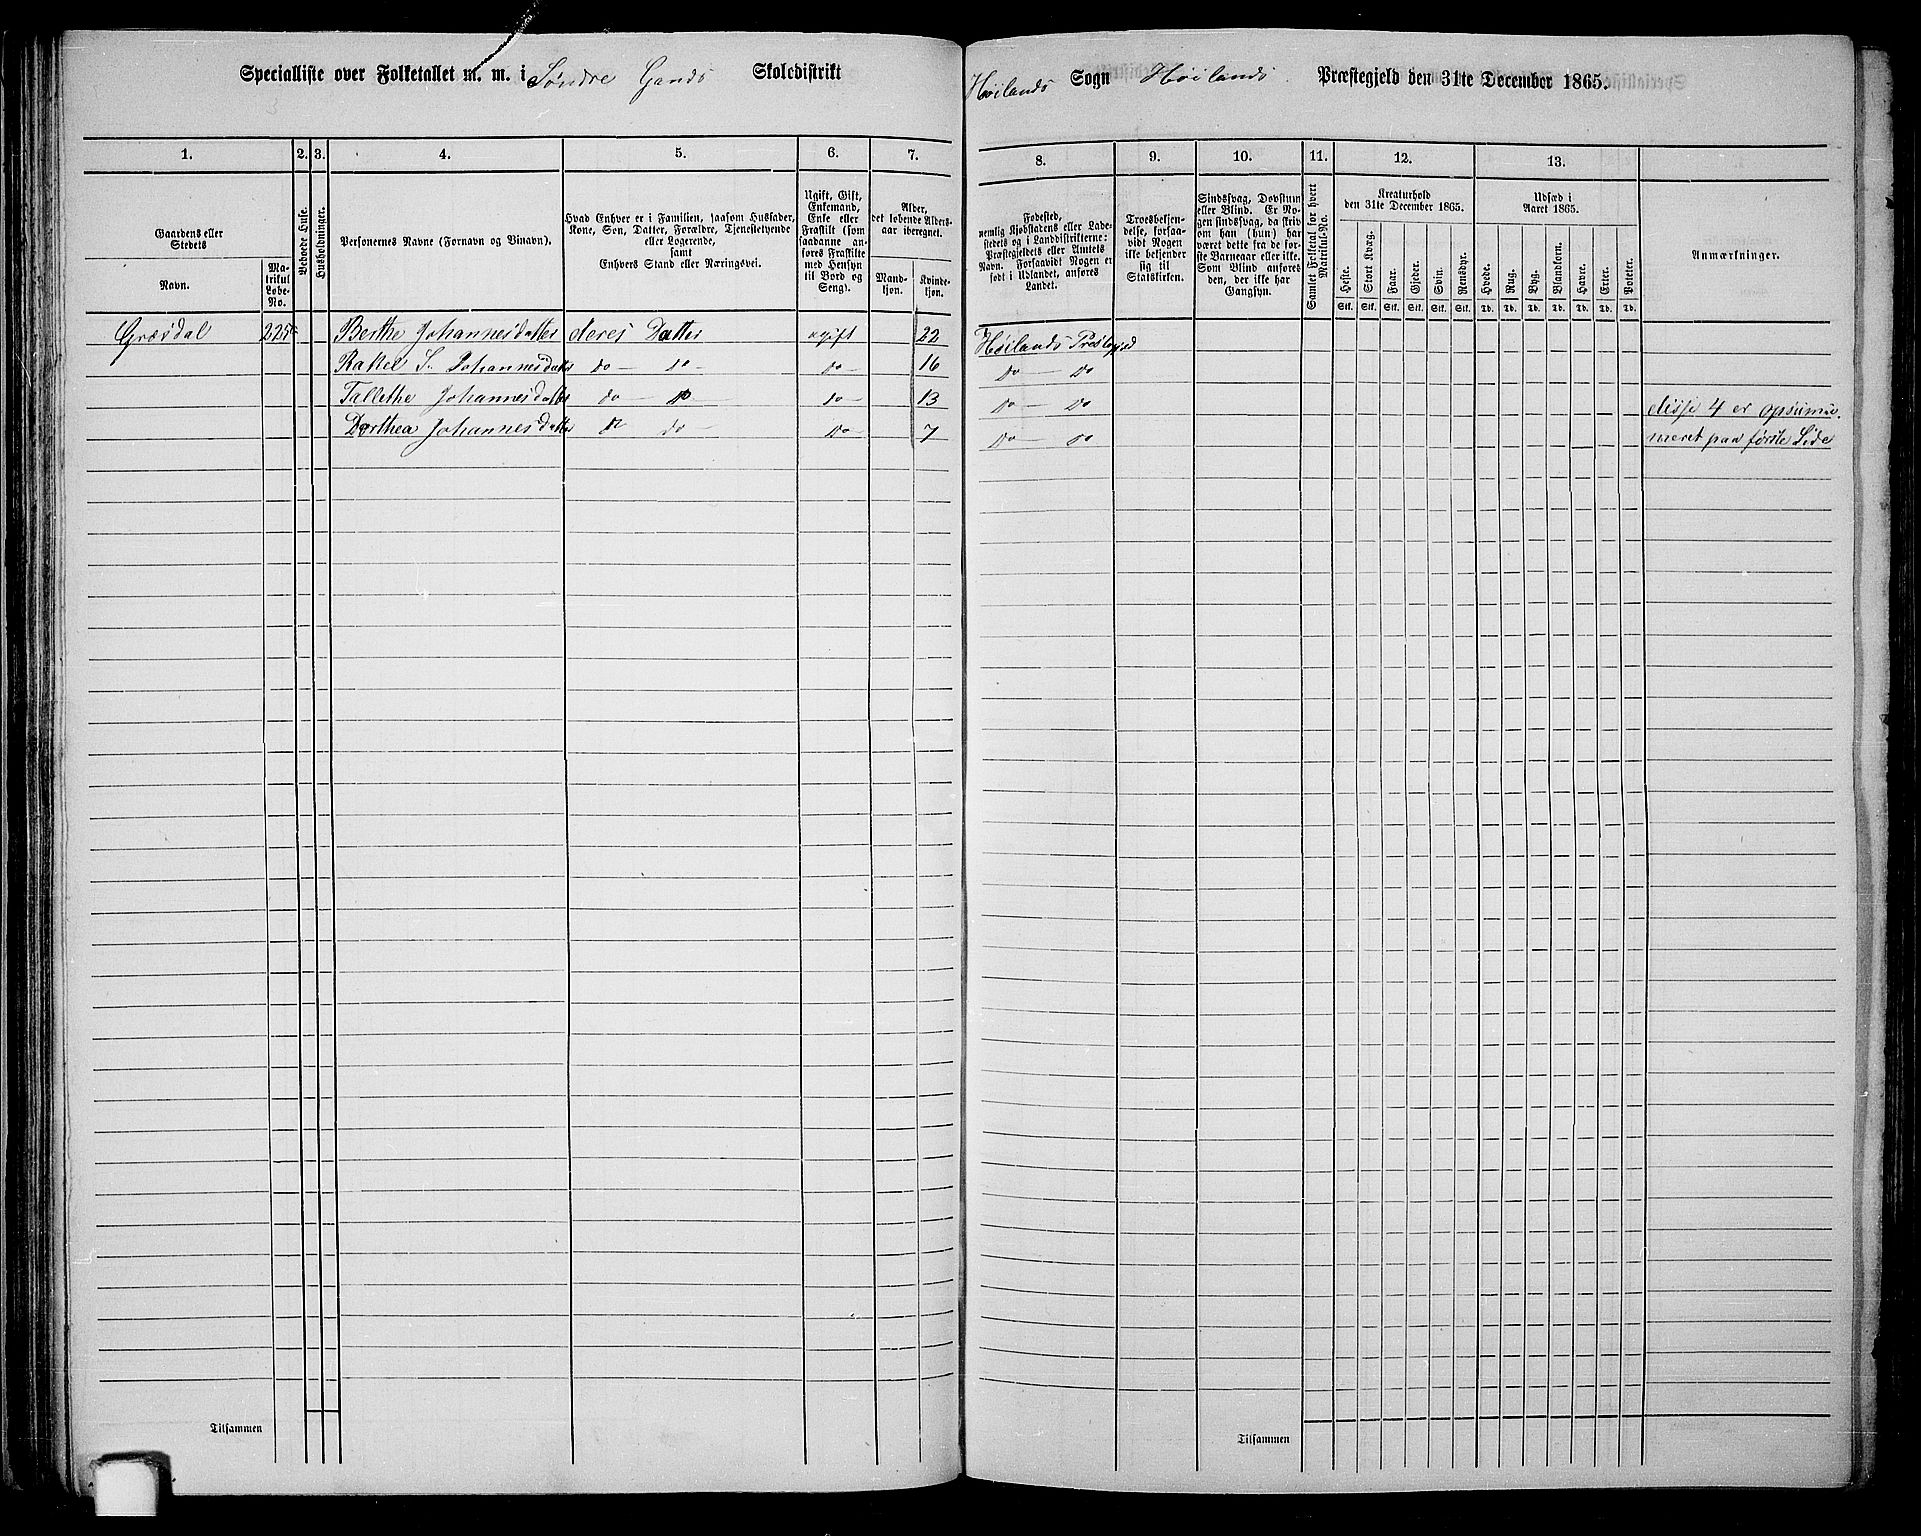 Specialliste over Folketallet m. m. i Søndre Gands Skoledistrikt Høilands Sogn Høilands Præstegjeld den 31te December 1865.
1. 2. 3. 4. 5. 6. 7. 8. 9. 10. 11. 12. 13.
Gaardens eller
Stedets
Navn.
Ma-
trikul
Løbe-
No.
Beboede Huse.
Husholdninger.
Personernes Navne (Fornavn og Tilnavn).
Hvad Enhver er i Familien, saasom Husfader,
Kone, Søn, Datter, Forældre, Tjenestetyende
eller Logerende,
samt
Enhvers Stand eller Næringsvei.
Ugift, Gift,
Enkemand,
Enke eller
Fraskilt (som
saadanne an-
føres Fraskilte
med Hensyn
til Bord og
Seng).
Alder,
det løbende Alders-
aar iberegnet.
Mand-
kjøn.
Kvinde-
kjøn.
Fødested,
nemlig Kjøbstadens eller Lade-
stedets og i Landdistrikterne:
Præstegjeldets eller Amtets
Navn. Forsaavidt Nogen er
født i Udlandet, anføres
Landet.
Troesbekjen-
delse, forsaa-
vidt Nogen
ikke bekjender
sig til
Statskirken.
Sindssvag, Døvstum
eller Blind. Er No-
gen sindssvag, da skriv
om han (hun) har
været dette fra de før-
ste Barneaar eller ikke.
Som Blind anføres
den, der ikke har
Gangsyn.
Samlet Folketal for hvert
Matrikul-No.
Kreaturhold
den 31te December 1865.
Heste.
Stort Kvæg.
Faar.
Gjeder.
Svin.
Rensdyr.
Stk. Stk. Stk. Stk. Stk. Stk.
Udsæd i
Aaret 1865.
Hvede.
Rug.
Byg.
Blandkorn.
Havre.
Erter.
Poteter.
Td. Td. Td. Td. Td. Td. Td.
Anmærkninger.
Græsdal 225 Berthe Johannesdatter deres Datter ugift 22 Høilands Prestegjed
Rakel S. Johannesdatter do — do — do — 16 do — do
Tallethe Johannesdatter do — do do — 13 do — do
disse 4 er opsumme-
Dorthea Johannesdatter do do — do — 7 do — do
meret paa første Side
Tilsammen
Tilsammen